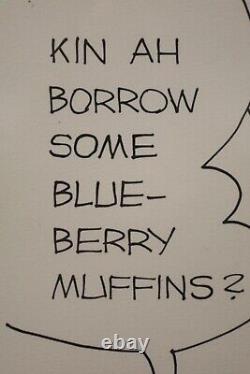 KIN AH
BORROW
SOME
BLUE-
BERRY
MUFFINS?
ebay